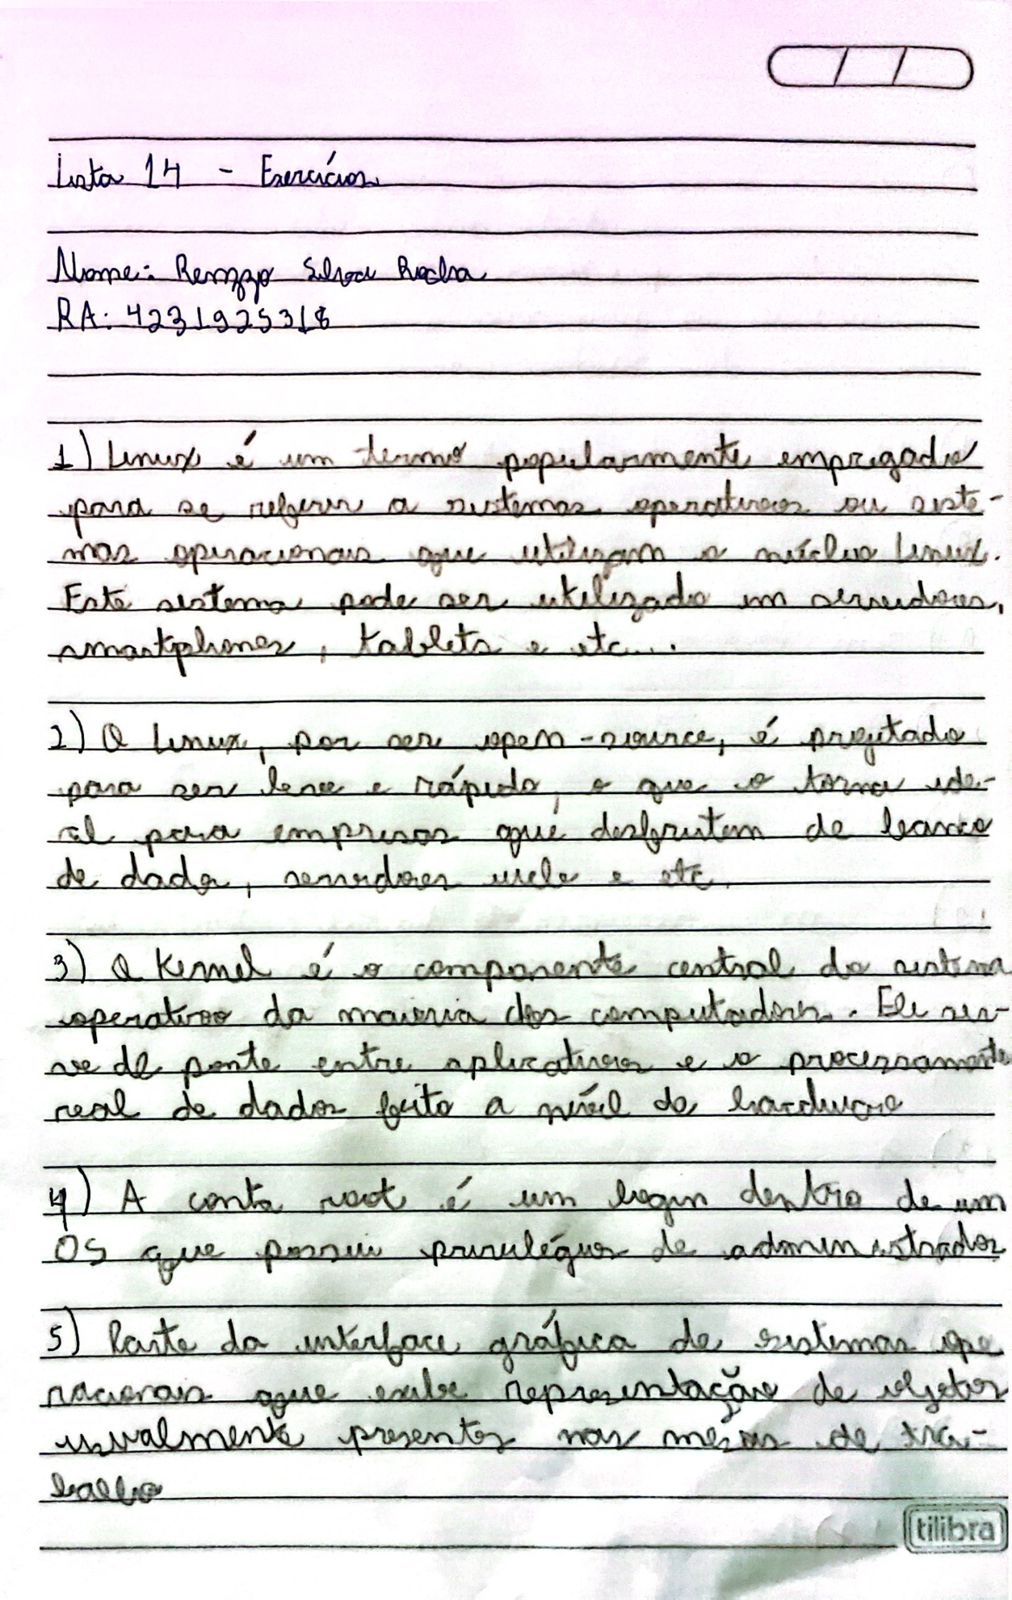 Lista 14 - Exercícios
Nome: Renzzo Silva Rocha
RA: 4231925318
1) Linux é um termo popularmente empregado
para se referir a sistemas operativos ou siste-
mas operacionais que utilizam o núcleo Linux.
Este sistema pode ser utilizado em servidores,
smartphones, tablets e etc...
2) O Linux, por ser open-source, é projetado
para ser leve e rápido, o que o torna ide-
al para empresas que desfrutem de banco
de dados, servidores web e etc.
3) O Kernel é o componente central do sistema
operativo da maioria dos computadores. Ele ser-
ve de ponte entre aplicativos e o processamento
real de dados feito a nível de hardware
4) A conta root é um login dentro de um
OS que possui privilégios de administrador
5) Parte da interface gráfica de sistemas ope
racionais que exibe representação de objetos
usualmente presentes nas mesas de tra-
balho
tilibra